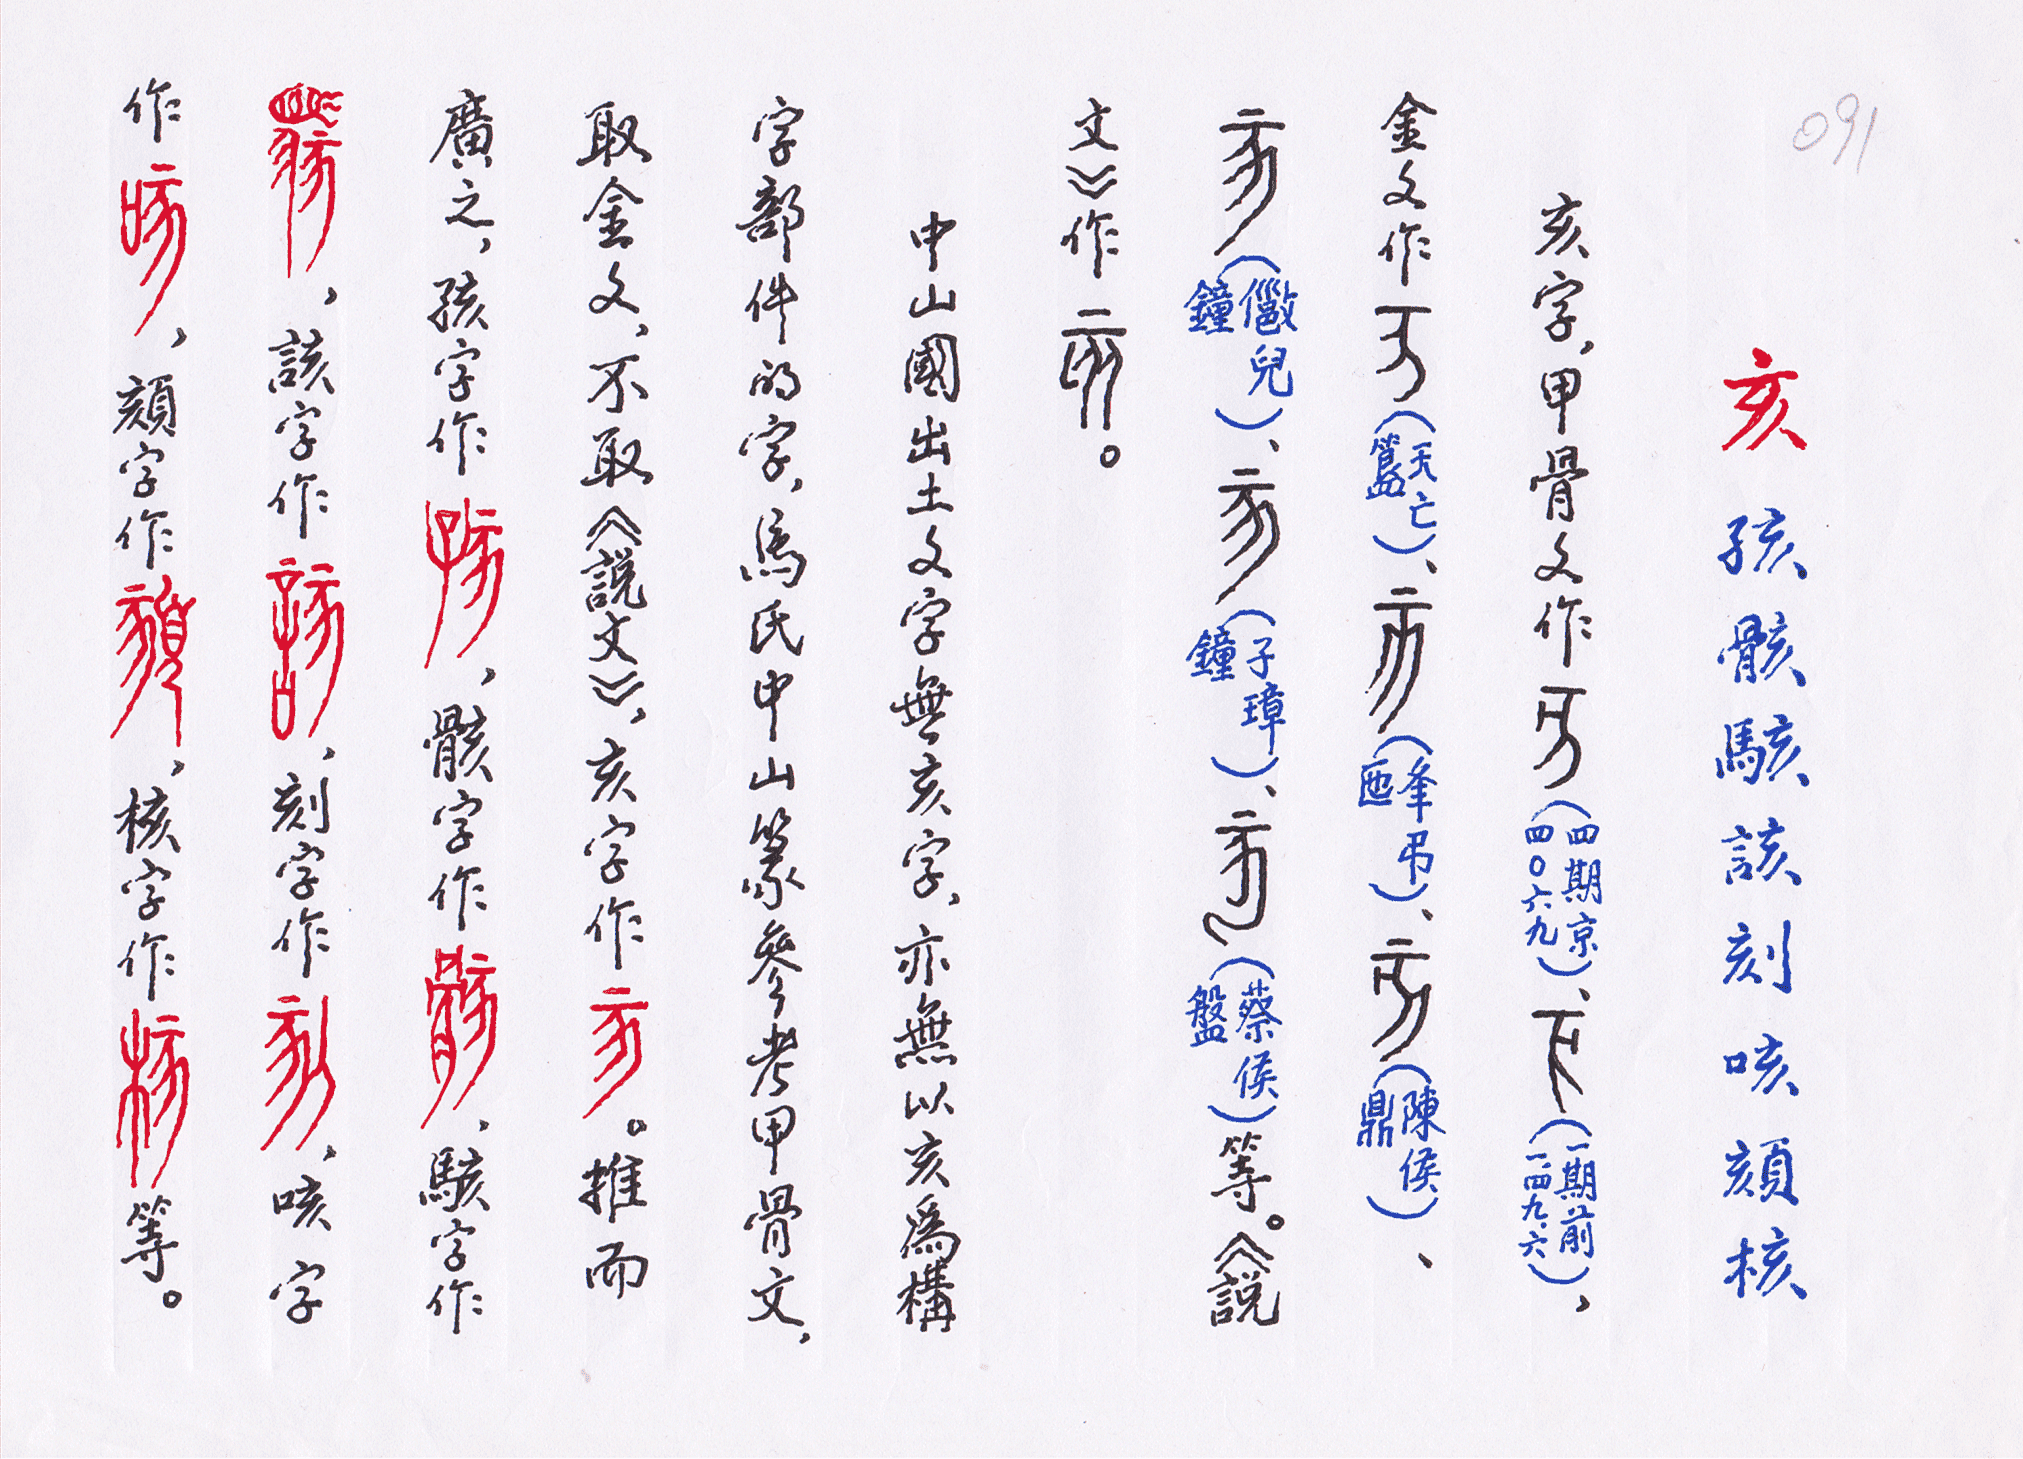 091
亥 孩骸駭該刻咳頦核
亥字，甲骨文作（四期京四〇六九）、（一期前一·四九·六），
金文作（天亡簋）、（夆弔匜）、（陳侯鼎）、
（儠兒鐘）、（子璋鐘）、（蔡侯盤）等。《說
文》作。
中山國出土文字無亥字，亦無以亥爲構
字部件的字，馬氏中山篆參考甲骨文，
取金文，不取《說文》，亥字作亥。推而
廣之，孩字作孩，骸字作骸，駭字作
駭，該字作該，刻字作刻，咳字
作咳，頦字作頦，核字作核等。